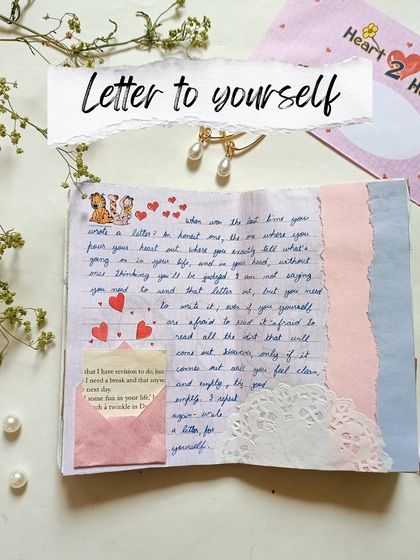 Letter to yourself
Heart
2
H
When was the last time you
wrote a letter? An honest one, the one where you
pour your heart out. Where you exactly tell what's
going on in your life, and in your head, without
once thinking you'll be judged. I am not saying
you need to send that letter out, but you need
to write it; even if you yourself
are afraid to read it afraid to
read all the dirt that will
come out. However only if it
comes out will you feel clean,
and empty, the good
empty. I repeat,
again- write
a letter, for
yourself...
that I have revision to do, but
I need a break and that anyw
next day.
some fun in your life,'
tch a twinkle in Da